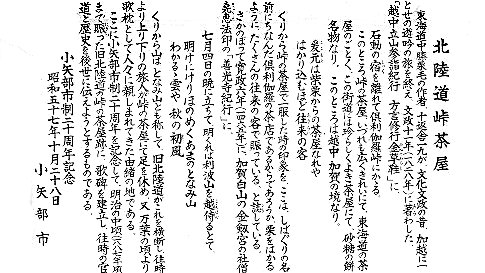 北陸道峠茶屋
東海道中膝栗毛の作者、十返舎一九が、文化文政の昔、加越に二
とせの遊吟の旅を終え、文政十一年(一八二八年)に著わした
「越中立山参詣紀行 方言修行金草鞋」に、
石動の宿を離れて倶利伽羅峠にかる。
このところ峠の茶屋いづれも広くきれいにて、東海道の茶
屋のごとく、この街道は珍らしくよき茶屋にて、砂糖の餅
名物なり。このところは越中、加賀の境なり。
炎元は栄葉からの茶屋なれや
はかり込むほど往来の客
くりから峠の茶屋で一服した時の印象を、ここは、しばしぐりの名
前にちなんだ倶利伽羅の茶店であるからであろうか、栗をはかる
ようにたくさんの往来の客で賑っている、と誌している。
さかのぼって寛政六年(一七九四年)に、加賀白山の金劔宮の社僧
良恵法印の「善光寺紀行」に、
七月四日の暁に立ちて、明くれば利波山を越侍るとて
明けにけりほのめくあまのとなみ山
わかるゝ雲や 秋の初風
くりからはとなみ山とも称して、旧北陸道がこれを横断し、往時
より上り下りの旅人が峠の茶屋にて足を休め、又万葉の頃より
歌枕として人々に親しまれてきた由緒の地である。
ここに小矢部市制二十周年を記念して、明治の中頃(一八八七年頃)
まで賑った旧北陸道の峠の茶屋跡に、歌碑を建立し、往時の官
道と歴史を後世に伝えようとするものである。
小矢部市制二十周年記念
昭和五十七年十月二十八日
小矢部市